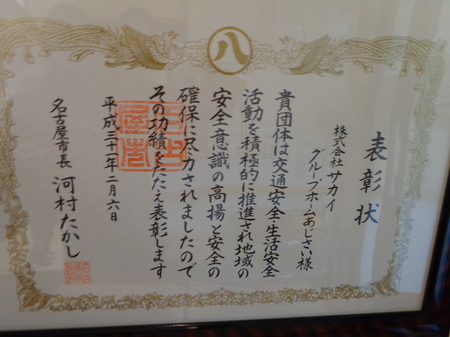 八
表彰状
株式会社サカイ
グループホームあじさい様
貴団体は交通安全・生活安全
活動を積極的に推進され地域の
安全意識の高揚と安全の
確保に尽力されましたので
その功績をたたえ表彰します
平成三十一年二月六日
名古屋市長 河村たかし